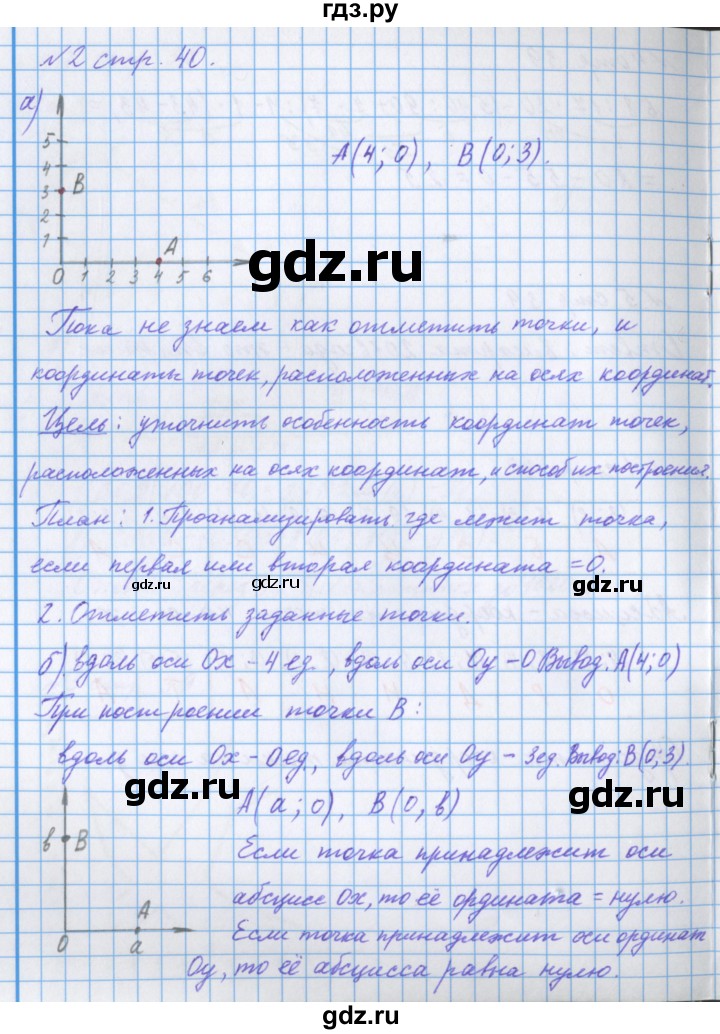 гдз.ру
№2 стр. 40.
а)
5
4
3 B
2
1
A
0 1 2 3 4 5 6
A(4;0), B(0;3).
gdz.ru
Пока не знаем как отметить точки, и
координаты точек, расположенных на осях координат.
Цель: уточнить особенность координат точек,
расположенных на осях координат, и способ их построения.
План: 1. Проанализировать где лежит точка,
если первая или вторая координата =0.
gdz.ru gdz.ru gdz.ru
2. Отметить заданные точки.
б) вдоль оси Ox – 4 ед., вдоль оси Oy – 0 Вывод: A(4;0)
При построении точки B:
вдоль оси Ox – 0 ед, вдоль оси Oy – 3 ед. Вывод: B(0;3).
gdz.ru gdz.ru
A(a;0), B(0,в)
в B
A
0 a
Если точка принадлежит оси
абсцисс Ox, то её ордината = нулю.
Если точка принадлежит оси ординат
Oy, то её абсцисса равна нулю.
gdz.ru gdz.ru
гдз.ру